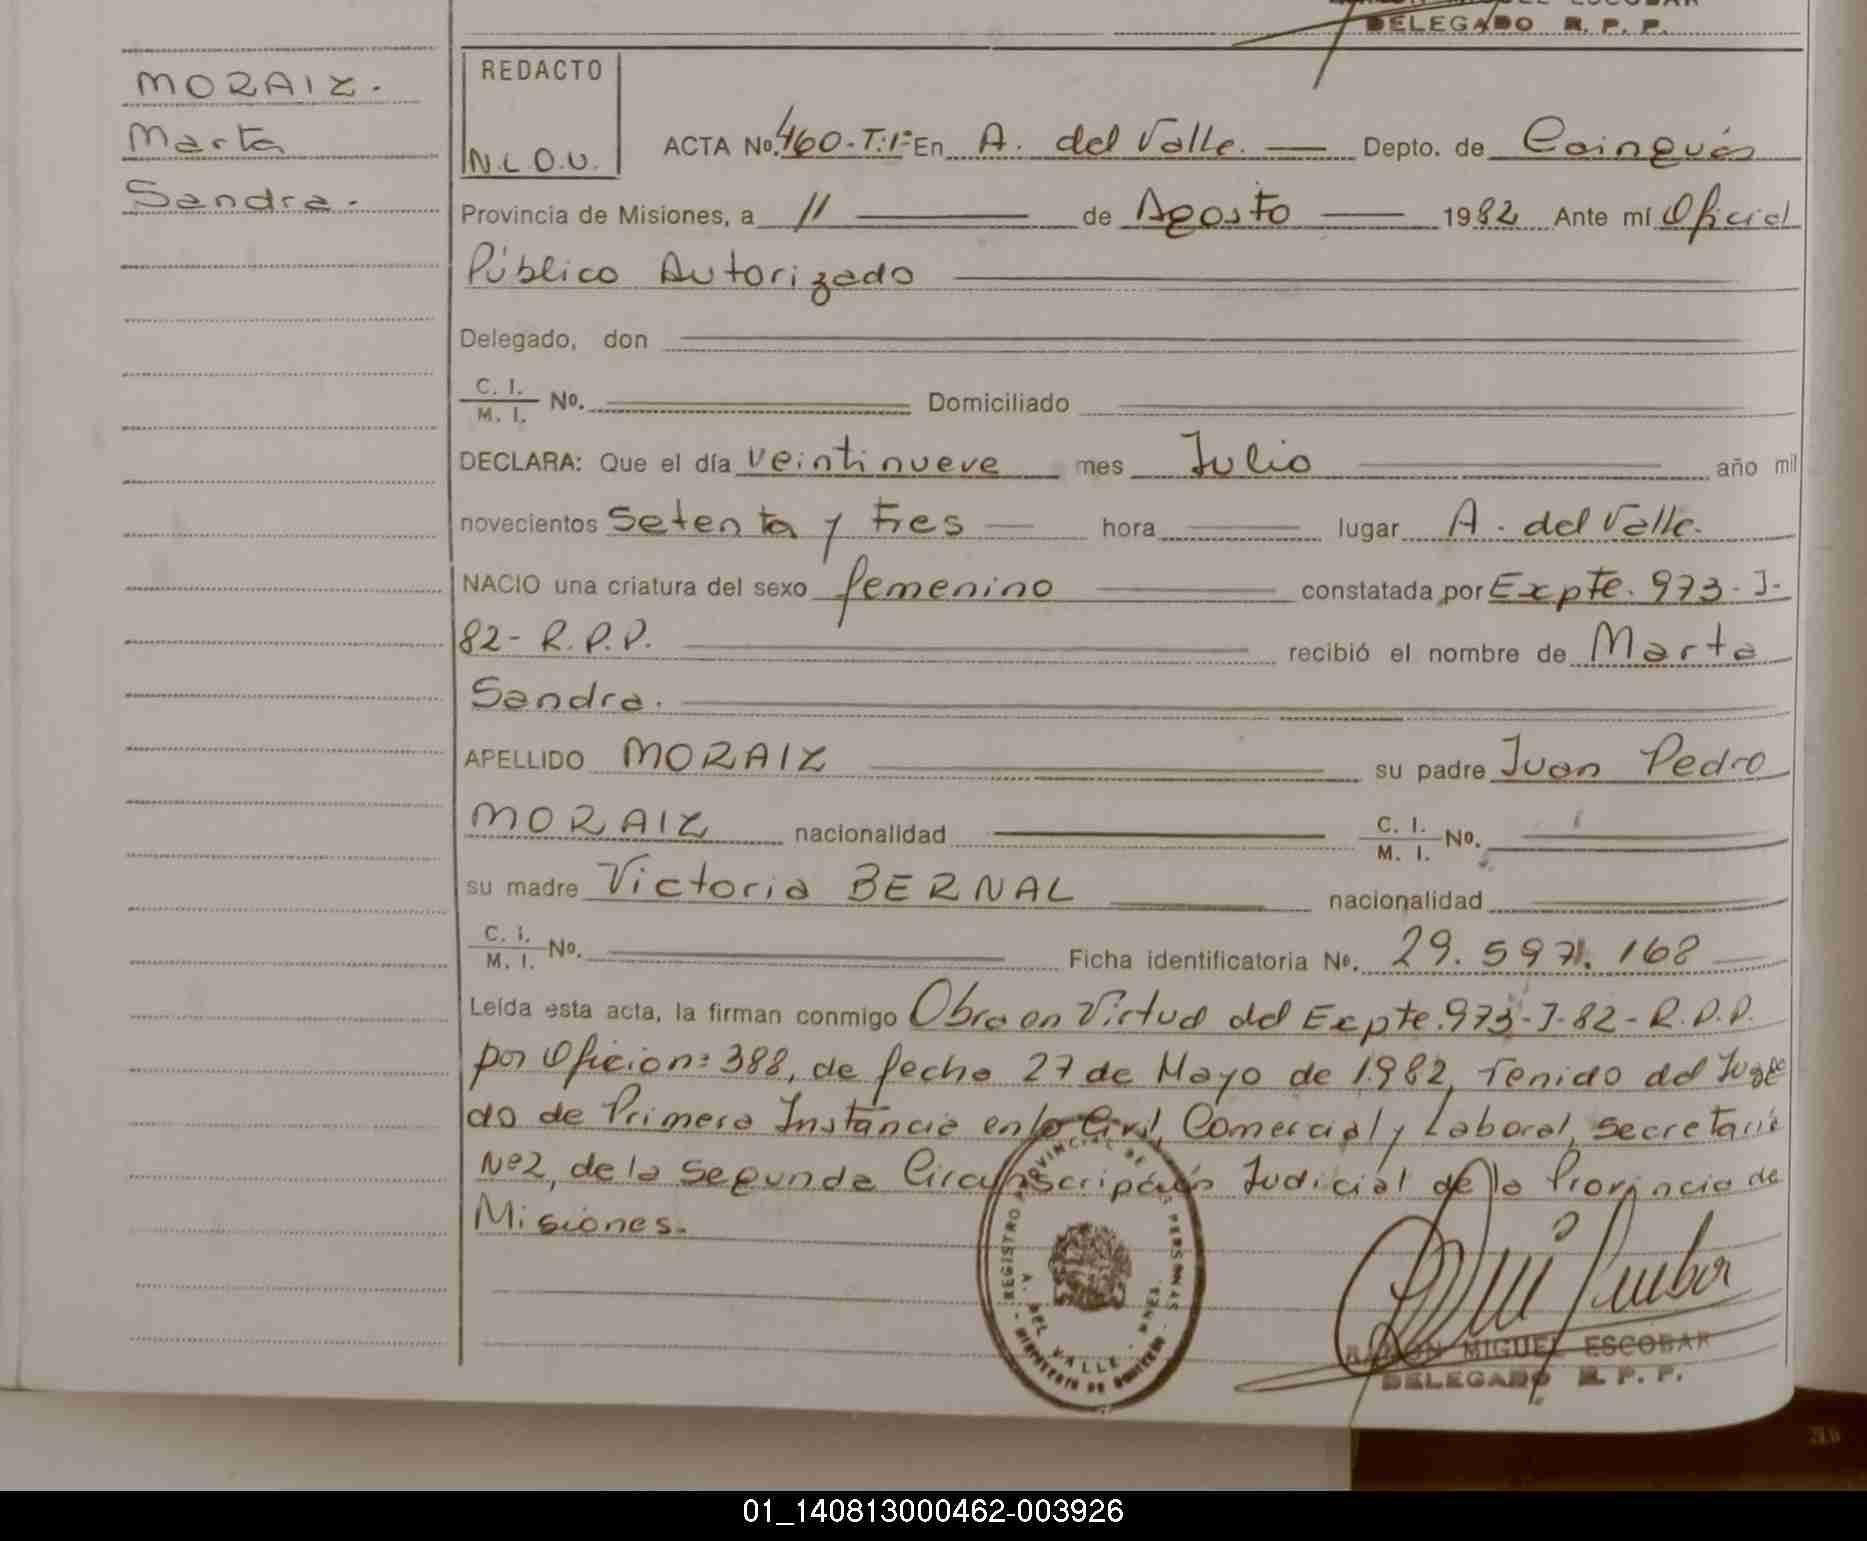 DELEGADO R. P. P.
MORAIZ.
Marta
Sandra.
REDACTO
N.L.O.U.
ACTA No. 460-T:1º En A. del Valle. Depto. de Cainguás
Provincia de Misiones, a 11 de Agosto 1982 Ante mí Oficial
Público Autorizado
Delegado, don
C. I.
M. I. No. Domiciliado
DECLARA: Que el día veintinueve mes Julio año mil
novecientos setenta y tres hora lugar A. del Valle.
NACIO una criatura del sexo femenino constatada por Expte. 973-J-
82- R.P.P. recibió el nombre de Marta
Sandra.
APELLIDO MORAIZ su padre Juan Pedro
MORAIZ nacionalidad C. I. M. I. No.
su madre Victoria BERNAL nacionalidad
C. I. M. I. No. Ficha identificatoria No. 29.597.168
Leída esta acta, la firman conmigo Obra en Virtud del Expte. 973-J-82-R.P.P.
por Oficio n: 388, de fecha 27 de Mayo de 1982, Tenido del Juzga
do de Primera Instancia en lo Civil, Comercial y Laboral, Secretaria
Nº2, de la Segunda Circunscripción Judicial de la Provincia de
Misiones.
REGISTRO PROVINCIAL DE PERSONAS
A. DEL VALLE - MNES.
MINISTERIO DE GOBIERNO
RAMON MIGUEL ESCOBAR
DELEGADO R. P. P.
01_140813000462-003926